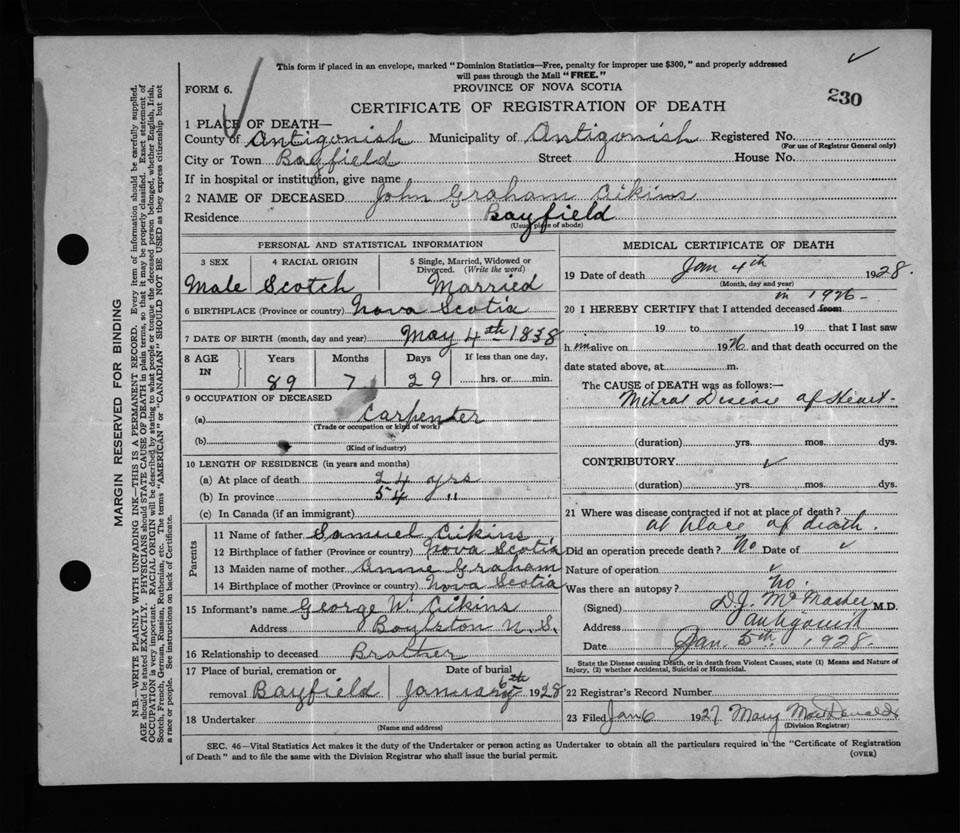 This form if placed in an envelope, marked "Dominion Statistics—Free, penalty for improper use $300," and properly addressed
will pass through the Mail "FREE."
FORM 6.
PROVINCE OF NOVA SCOTIA
230
CERTIFICATE OF REGISTRATION OF DEATH
1 PLACE OF DEATH—
County of Antigonish Municipality of Antigonish Registered No.
(For use of Registrar General only)
City or Town Bayfield Street House No.
If in hospital or institution, give name
2 NAME OF DECEASED John Graham Cikins
Residence Bayfield
(Usual place of abode)
PERSONAL AND STATISTICAL INFORMATION
3 SEX 4 RACIAL ORIGIN 5 Single, Married, Widowed or Divorced. (Write the word)
Male Scotch Married
6 BIRTHPLACE (Province or country) Nova Scotia
7 DATE OF BIRTH (month, day and year) May 4th 1838
8 AGE IN Years Months Days If less than one day,
89 7 29 hrs. or min.
9 OCCUPATION OF DECEASED
(a) Carpenter
(Trade or occupation or kind of work)
(b)
(Kind of industry)
10 LENGTH OF RESIDENCE (in years and months)
(a) At place of death 24 yrs
(b) In province 54 "
(c) In Canada (if an immigrant)
Parents
11 Name of father Samuel Cikins
12 Birthplace of father (Province or country) Nova Scotia
13 Maiden name of mother Annie Graham
14 Birthplace of mother (Province or country) Nova Scotia
15 Informant's name George W. Cikins
Address Boylston N. S.
16 Relationship to deceased Brother
17 Place of burial, cremation or removal Bayfield Date of burial January 6th 1928
18 Undertaker
(Name and address)
MEDICAL CERTIFICATE OF DEATH
19 Date of death Jan 4th 1928.
(Month, day and year)
in 1926 -
20 I HEREBY CERTIFY that I attended deceased from
19 to 19 that I last saw
h im alive on 1926 and that death occurred on the
date stated above, at m.
The CAUSE of DEATH was as follows:—
Mitral Disease of Heart.
(duration) yrs. mos. dys.
CONTRIBUTORY
(duration) yrs. mos. dys.
21 Where was disease contracted if not at place of death?
at place of death.
Did an operation precede death? No Date of
Nature of operation
Was there an autopsy? No.
(Signed) D.J. McMaster M.D.
Address Antigonish
Date Jan. 5th, 1928.
State the Disease causing Death, or in death from Violent Causes, state (1) Means and Nature of
Injury, (2) whether Accidental, Suicidal or Homicidal.
22 Registrar's Record Number
23 Filed Jan 6 1927. Mary MacDonald
(Division Registrar)
SEC. 46—Vital Statistics Act makes it the duty of the Undertaker or person acting as Undertaker to obtain all the particulars required in the "Certificate of Registration
of Death" and to file the same with the Division Registrar who shall issue the burial permit.
(OVER)
MARGIN RESERVED FOR BINDING
N.B.—WRITE PLAINLY WITH UNFADING INK—THIS IS A PERMANENT RECORD. Every item of information should be carefully supplied.
AGE should be stated EXACTLY. PHYSICIANS should STATE CAUSE OF DEATH in plain terms, so that it may be properly classified. Exact statement of
OCCUPATION is very important. RACIAL ORIGIN will be described by stating to what people or tongue the deceased person belonged, whether English, Irish,
Scotch, French, German, Russian, Ruthenian, etc. The terms "AMERICAN" or "CANADIAN" SHOULD NOT BE USED as they express citizenship but not
a race or people. See instructions on back of Certificate.